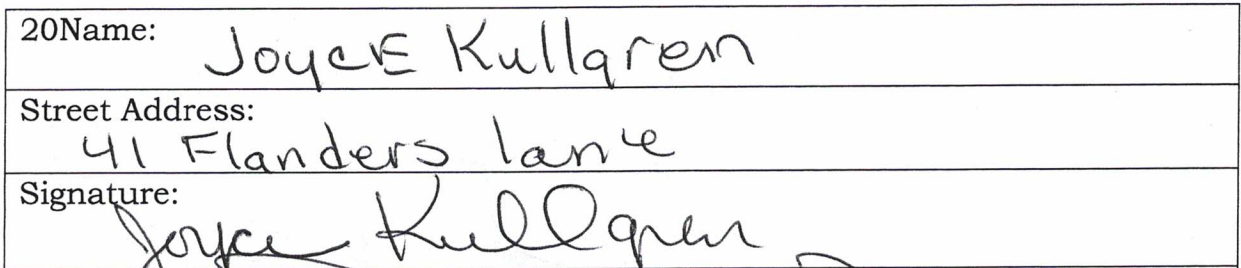 20Name:
JoycE Kullgren
Street Address:
41 Flanders lane
Signature:
Joyce Kullgren